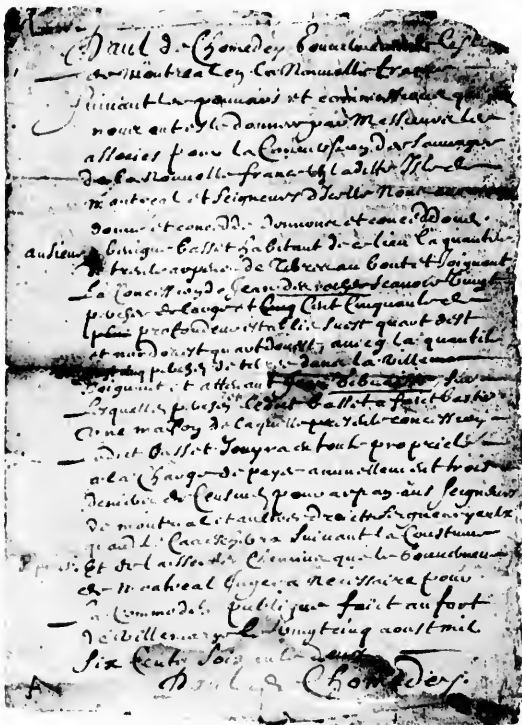 Paul de Chomedey Gouverneur de l'Isle
de Montreal en la Nouvelle france
Suivant les pouvoirs et commissions qui
nous ont este donnez par Messieurs les
associez pour la Conversion des Sauvages
de la Nouvelle france en la ditte Isle de
Montreal et Seigneurs d'Icelle Nous avons
donné et concedé donnons et concedons
au Sieur benigne basset habitant de ce lieu la quantité
de trente arpens de Terre au bout et Joignant
la Concession de Jean
perches de large et Cinq Cent Cinquante de
profondeur Suest quart d'Est
et nordouest quart d'ouest avecq la quantité
perches de terre dans la Ville
Joignant et attenant Sur
lesquelles perches ledit basset a faict bastir
Une maison de laquelle presente concession
ledit Basset Jouyra en toute proprieté
a la Charge de payer annuellement trois
deniers de Cens pour arpan aus Seigneurs
de montreal et autres droicts Seigneuriaux
quand le Cas eschera Suivant la Coustume
Et de laisser les Chemins que le Gouverneur
de Montreal Jugera necessaire pour
la Commodité publique faict au fort
de Villemarye le Vingt cinq aoust mil
Six Cents Soixante deux
Paul de Chomedey